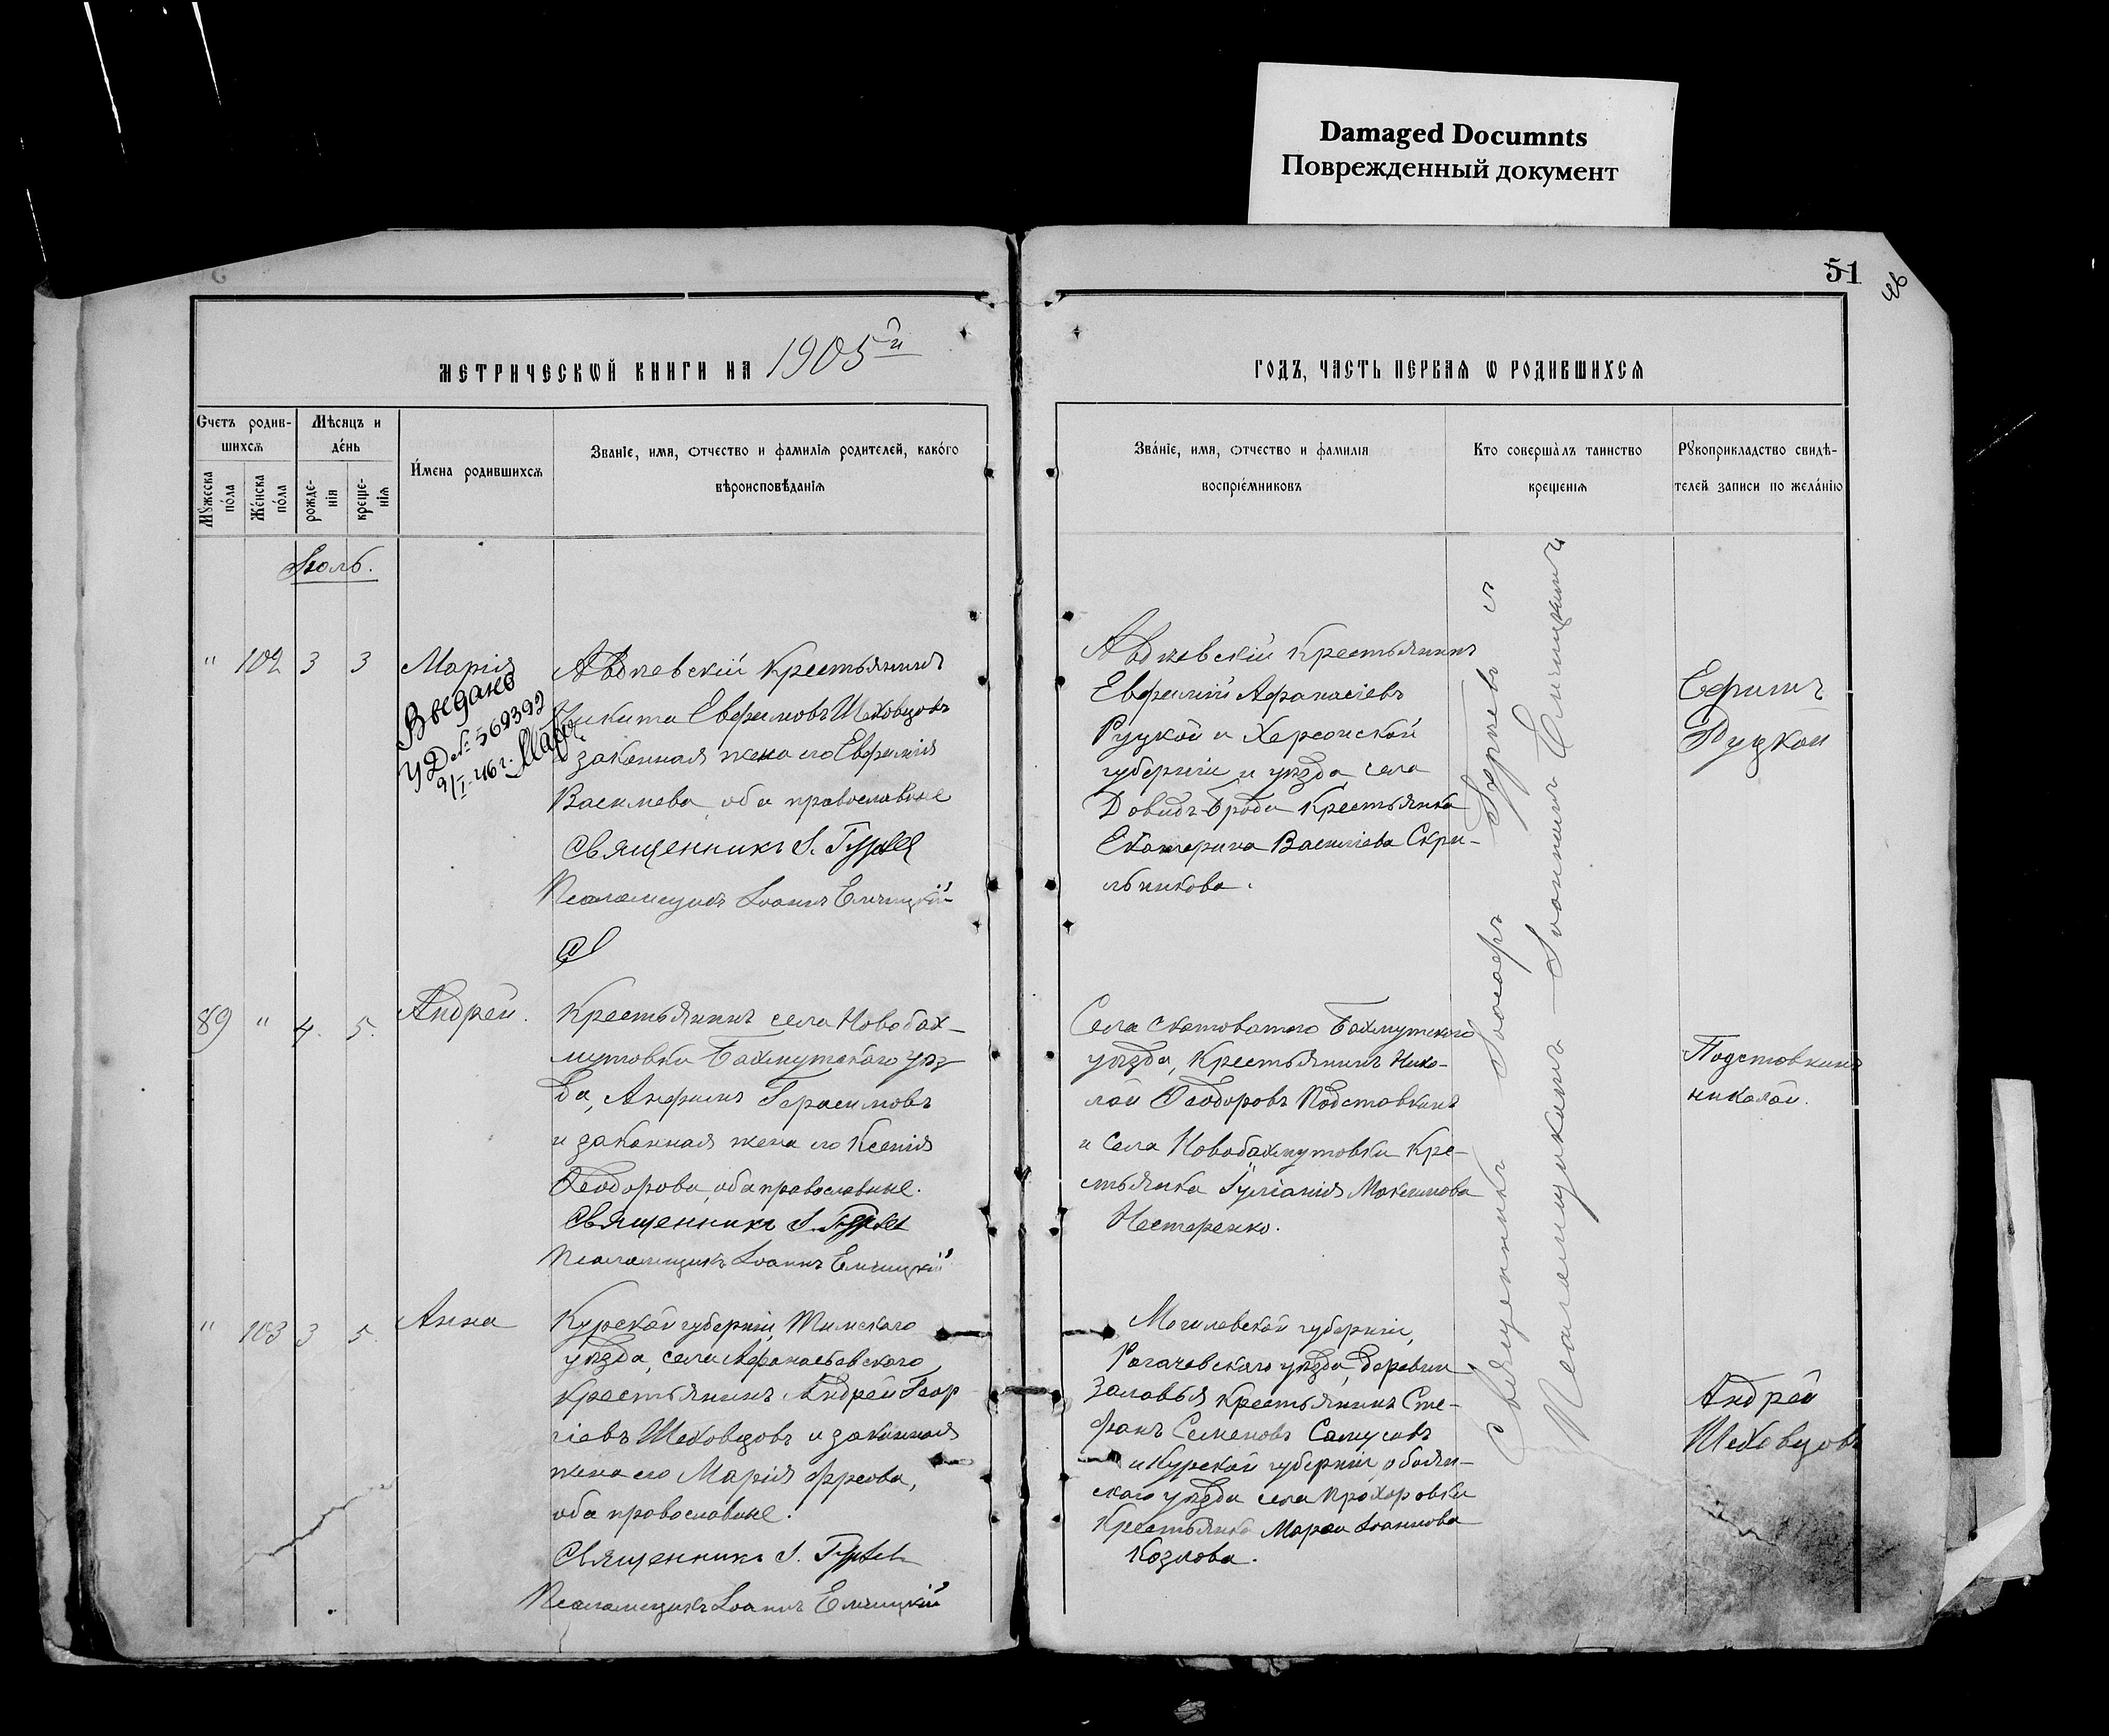 Damaged Documnts
Поврежденный документ
51
46
МЕТРИЧЕСКОЙ КНИГИ НА 1905й
ГОДЪ, ЧАСТЬ ПЕРВАЯ Ѡ РОДИВШИХСЯ
Счетъ родив-
шихся
Мужеска
пола
Женска
пола
Мѣсяцъ и
день
рожде-
нія
креще-
нія
Имена родившихся
Званіе, имя, отчество и фамилія родителей, какого
вѣроисповѣданія
Званіе, имя, отчество и фамилія
воспріемниковъ
Кто совершалъ таинство
крещенія
Рукоприкладство свидѣ-
телей записи по желанію
Іюль.
" 102 3 3 Марія
УД № 569392
9/I-46 г.
Авдѣевскій крестьянинъ
Никита Евфимовъ Шеховцовъ
законная жена его Евфимія
Васильева, оба православные
Священникъ І. Гурьев
Псаломщикъ Іоаннъ Емчицкій
Авдѣевскій крестьянинъ
Евфимій Афанасіевъ
Руцкой и Херсонской
губерніи и уѣзда, села
Давидъ-Брода крестьянка
Екатерина Васильева Скри-
льникова.
89 " 4. 5. Андрей.
Крестьянинъ села Новобах-
мутовки Бахмутскаго уѣз
да, Анфимъ Герасимовъ
и законная жена его Ксенія
Ѳеодорова, оба православные.
Священникъ І. Гурьев
Псаломщикъ Іоаннъ Емчицкій
Села Скотоватого Бахмутского
уѣзда, крестьянинъ Нико-
лай Ѳеодоровъ Подставкинъ
и села Новобахмутовки кре-
стьянка Іуліанія Максимова
Нестеренко.
Подставкинъ
николай.
" 103 3 5 Анна
Курской губерніи, Тимскаго
уѣзда, села Афанасьевского
крестьянинъ Андрей Геор
гіевъ Шеховцовъ и законная
жена его Марія
оба православные.
Священникъ І. Гурьев
Псаломщикъ Іоаннъ Емчицкій
Могилевской губерніи,
Рогачевскаго уѣзда, деревни
крестьянинъ Сте-
фанъ Семеновъ
и Курской губерніи, обоян-
скаго уѣзда села Прохоровки
крестьянка Іоаннова
Козлова.
Андрей
Шеховцовъ
Священникъ Гурьевъ съ
Псаломщикомъ Іоанномъ Емчицкимъ